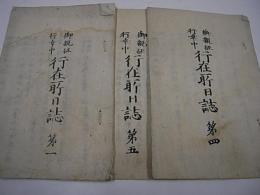 御親征
行幸中
行在所日誌 第一
御親征
行幸中
行在所日誌 第五
御親征
行幸中
行在所日誌 第四